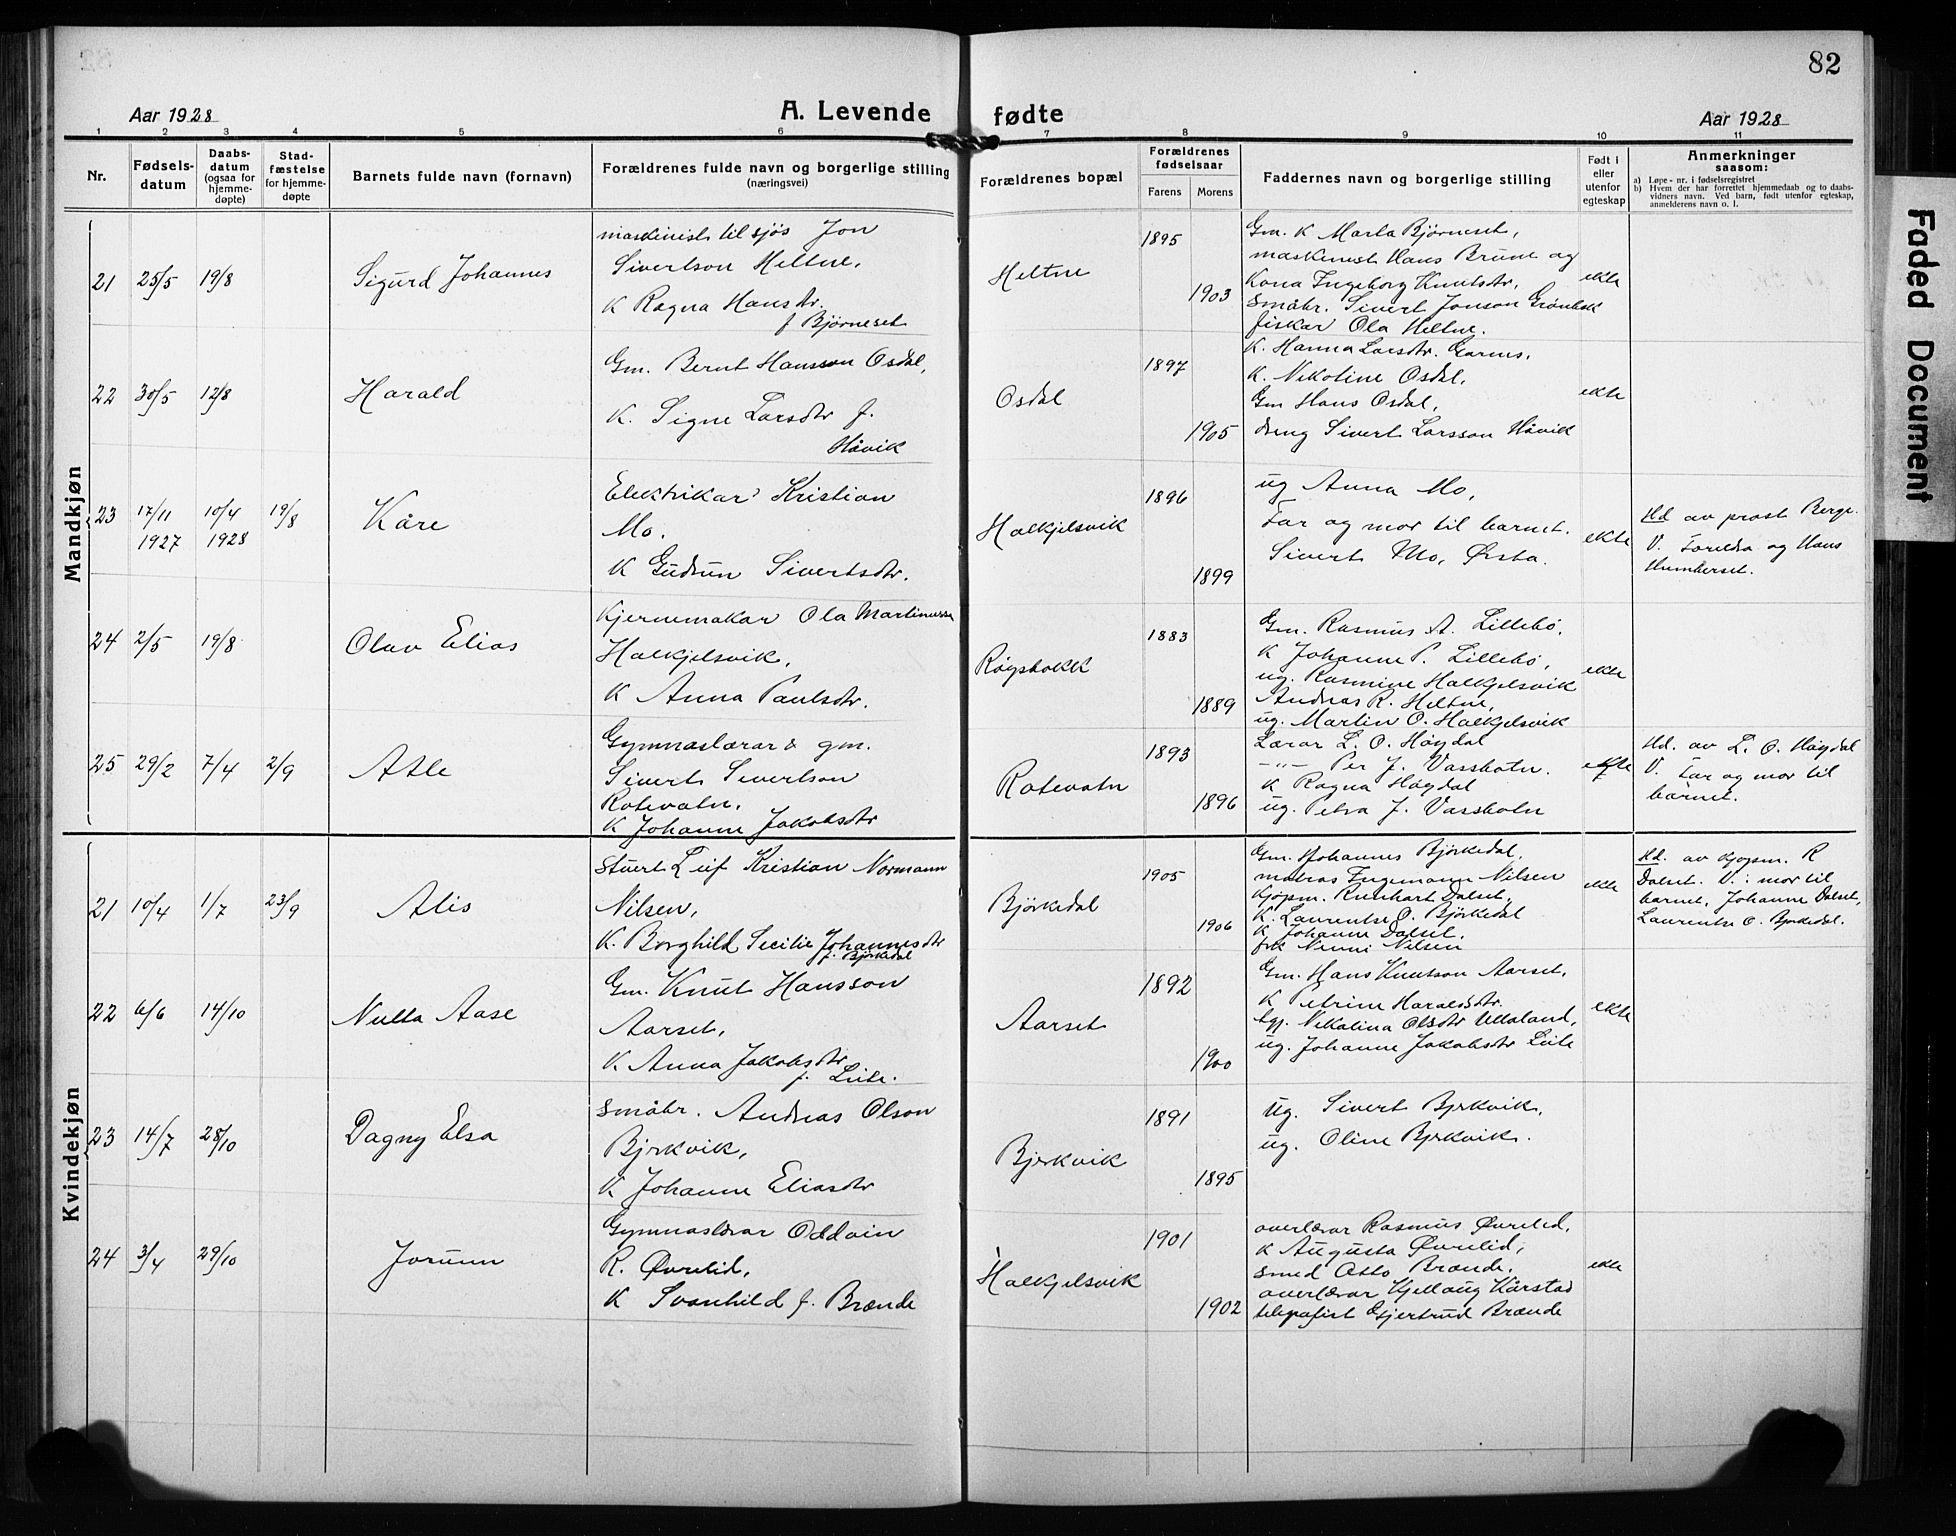 82
Aar 1928
A. Levende fødte
Aar 1928
1 2 3 4 5 6 7 8 9 10 11
Nr.
Fødsels-
datum
Daabs-
datum
(ogsaa for
hjemme-
døpte)
Stad-
fæstelse
for hjemme-
døpte
Barnets fulde navn (fornavn)
Forældrenes fulde navn og borgerlige stilling
(næringsvei)
Forældrenes bopæl
Forældrenes
fødselsaar
Farens Morens
Faddernes navn og borgerlige stilling
Født i
eller
utenfor
egteskap
Anmerkninger
saasom:
a) Løpe-nr. i fødselsregistret
b) Hvem der har forrettet hjemmedaab og to daabs-
vidners navn. Ved barn, født utenfor egteskap,
anmelderens navn o. l.
Mandkjøn
21 25/5 19/8
Sigurd Johannes
maskinist til sjøs Jon
Sivertson Heltne,
K Ragna Hansdtr.
f Bjørneset
Heltne
1895
1903
Gm. K Marta Bjørneset,
maskinist Hans Brune og
Kona Ingeborg Knutsdtr,
småbr. Sivert Jonson
fiskar Ola Heltne.
ekte
22 30/5 12/8
Harald
Gm. Bernt Hansson Osdal,
K. Signe Larsdtr f.
Håvik
Osdal
1897
1905
K. Hanna Larsdtr.
K. Nikoline Osdal,
Gm Hans Osdal,
dreng Sivert Larsson Håvik
ekte
23 17/11 1927 10/4 1928 19/8
Kåre
Elektrikar Kristian
Mo.
K Gudrun Sivertsdtr.
Halkjelsvik
1896
1899
ug Anna Mo,
Far og mor til barnet.
Sivert Mo, Ørsta.
ekte
Hd av prost Berge.
V. Foreldra og Hans
Humberset.
24 2/5 19/8
Olav Elias
Kjernemakar Ola Martinussn
Halkjelsvik,
K Anna Paulsdtr.
1883
1889
Gm. Rasmus A. Lillebø,
K Johanne P. Lillebø,
ug. Rasmine Halkjelsvik
Andreas R. Heltne,
ug. Martin O. Halkjelsvik
ekte
25 29/2 7/4 2/9
Atle
Gymnaslærar & gm.
Sivert Sivertson
Rotevatn.
K Johanne Jakobsdtr
Rotevatn
1893
1896
Lærar L. O. Høydal
—"— Per J. Vassbotn.
K Ragna Høydal
ug. Petra J. Vassbotn
ekte
Hd. av L. O. Høydal
V. Far og mor til
barnet.
Kvindekjøn
21 10/4 1/7 23/9
Alis
Stuert Leif Kristian Normann
Nilsen,
K. Borghild Secilie Johannesdtr
f. Bjørkedal
Bjørkedal
1905
1906
Gm. Johannes Bjørkedal,
matros Ingemann Nilsen
Kjøpm. Reinhart Dalset,
K. Laurentse O. Bjørkedal
K Johanne Dalset,
frk Nenni Nilsen
ekte
Hd. av Kjøpm. R
Dalset. V.: mor til
barnet, Johanne Dalset,
Laurentse O. Bjørkedal.
22 6/6 14/10
Nella Aase
Gm. Knut Hansson
Aarset,
K. Anna Jakobsdtr
f. Leite.
Aarset
1892
1900
Gm. Hans Knutson Aarset,
K Petrine Haraldsdtr.
tgj. Nikolina Olsdtr Ulleland,
ug. Johanne Jakobsdtr Leite
ekte
23 14/7 28/10
Dagny Elsa
småbr. Andreas Olson
Bjrkvik,
K Johanne Eliasdtr
Bjerkvik
1891
1895
ug. Sivert Bjrkvik,
ug. Oline Bjrkvik.
24 3/4 29/10
Jorunn
Gymnaslærar Oddvin
R. Øvrelid,
K Svanhild f. Brænde
Halkjelsvik
1901
1902
overlærar Rasmus Øvrelid,
K Augusta Øvrelid,
smed Otto Brænde,
overlærar Kjellaug Kårstad
telegrafist Gjertrud Brænde
ekte
Faded Document